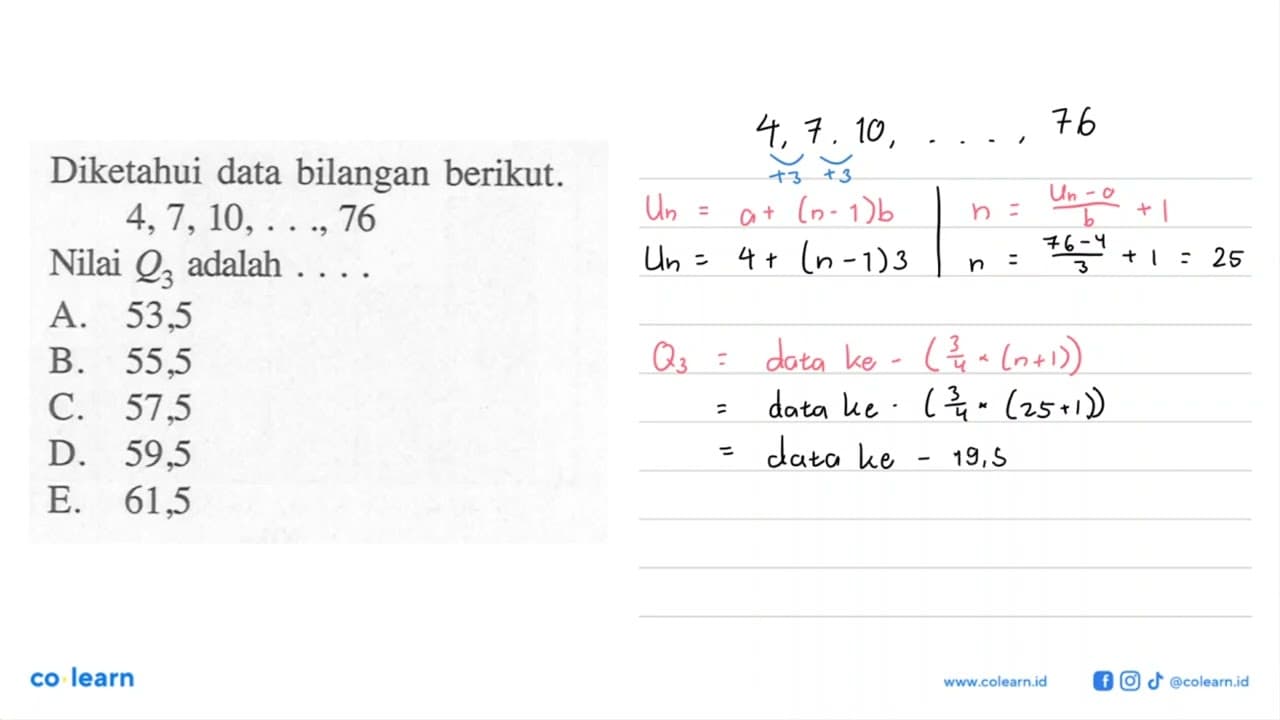 Diketahui data bilangan berikut.
4, 7, 10, . . ., 76
Nilai Q₃ adalah . . . .
A. 53,5
B. 55,5
C. 57,5
D. 59,5
E. 61,5
4, 7. 10, . . . . , 76
+3 +3
Un = a + (n - 1)b | n = (Un - a)/b + 1
Un = 4 + (n - 1)3 | n = (76 - 4)/3 + 1 = 25
Q₃ = data ke - (3/4 × (n+1))
= data ke - (3/4 × (25+1))
= data ke - 19,5
co learn
www.colearn.id @colearn.id